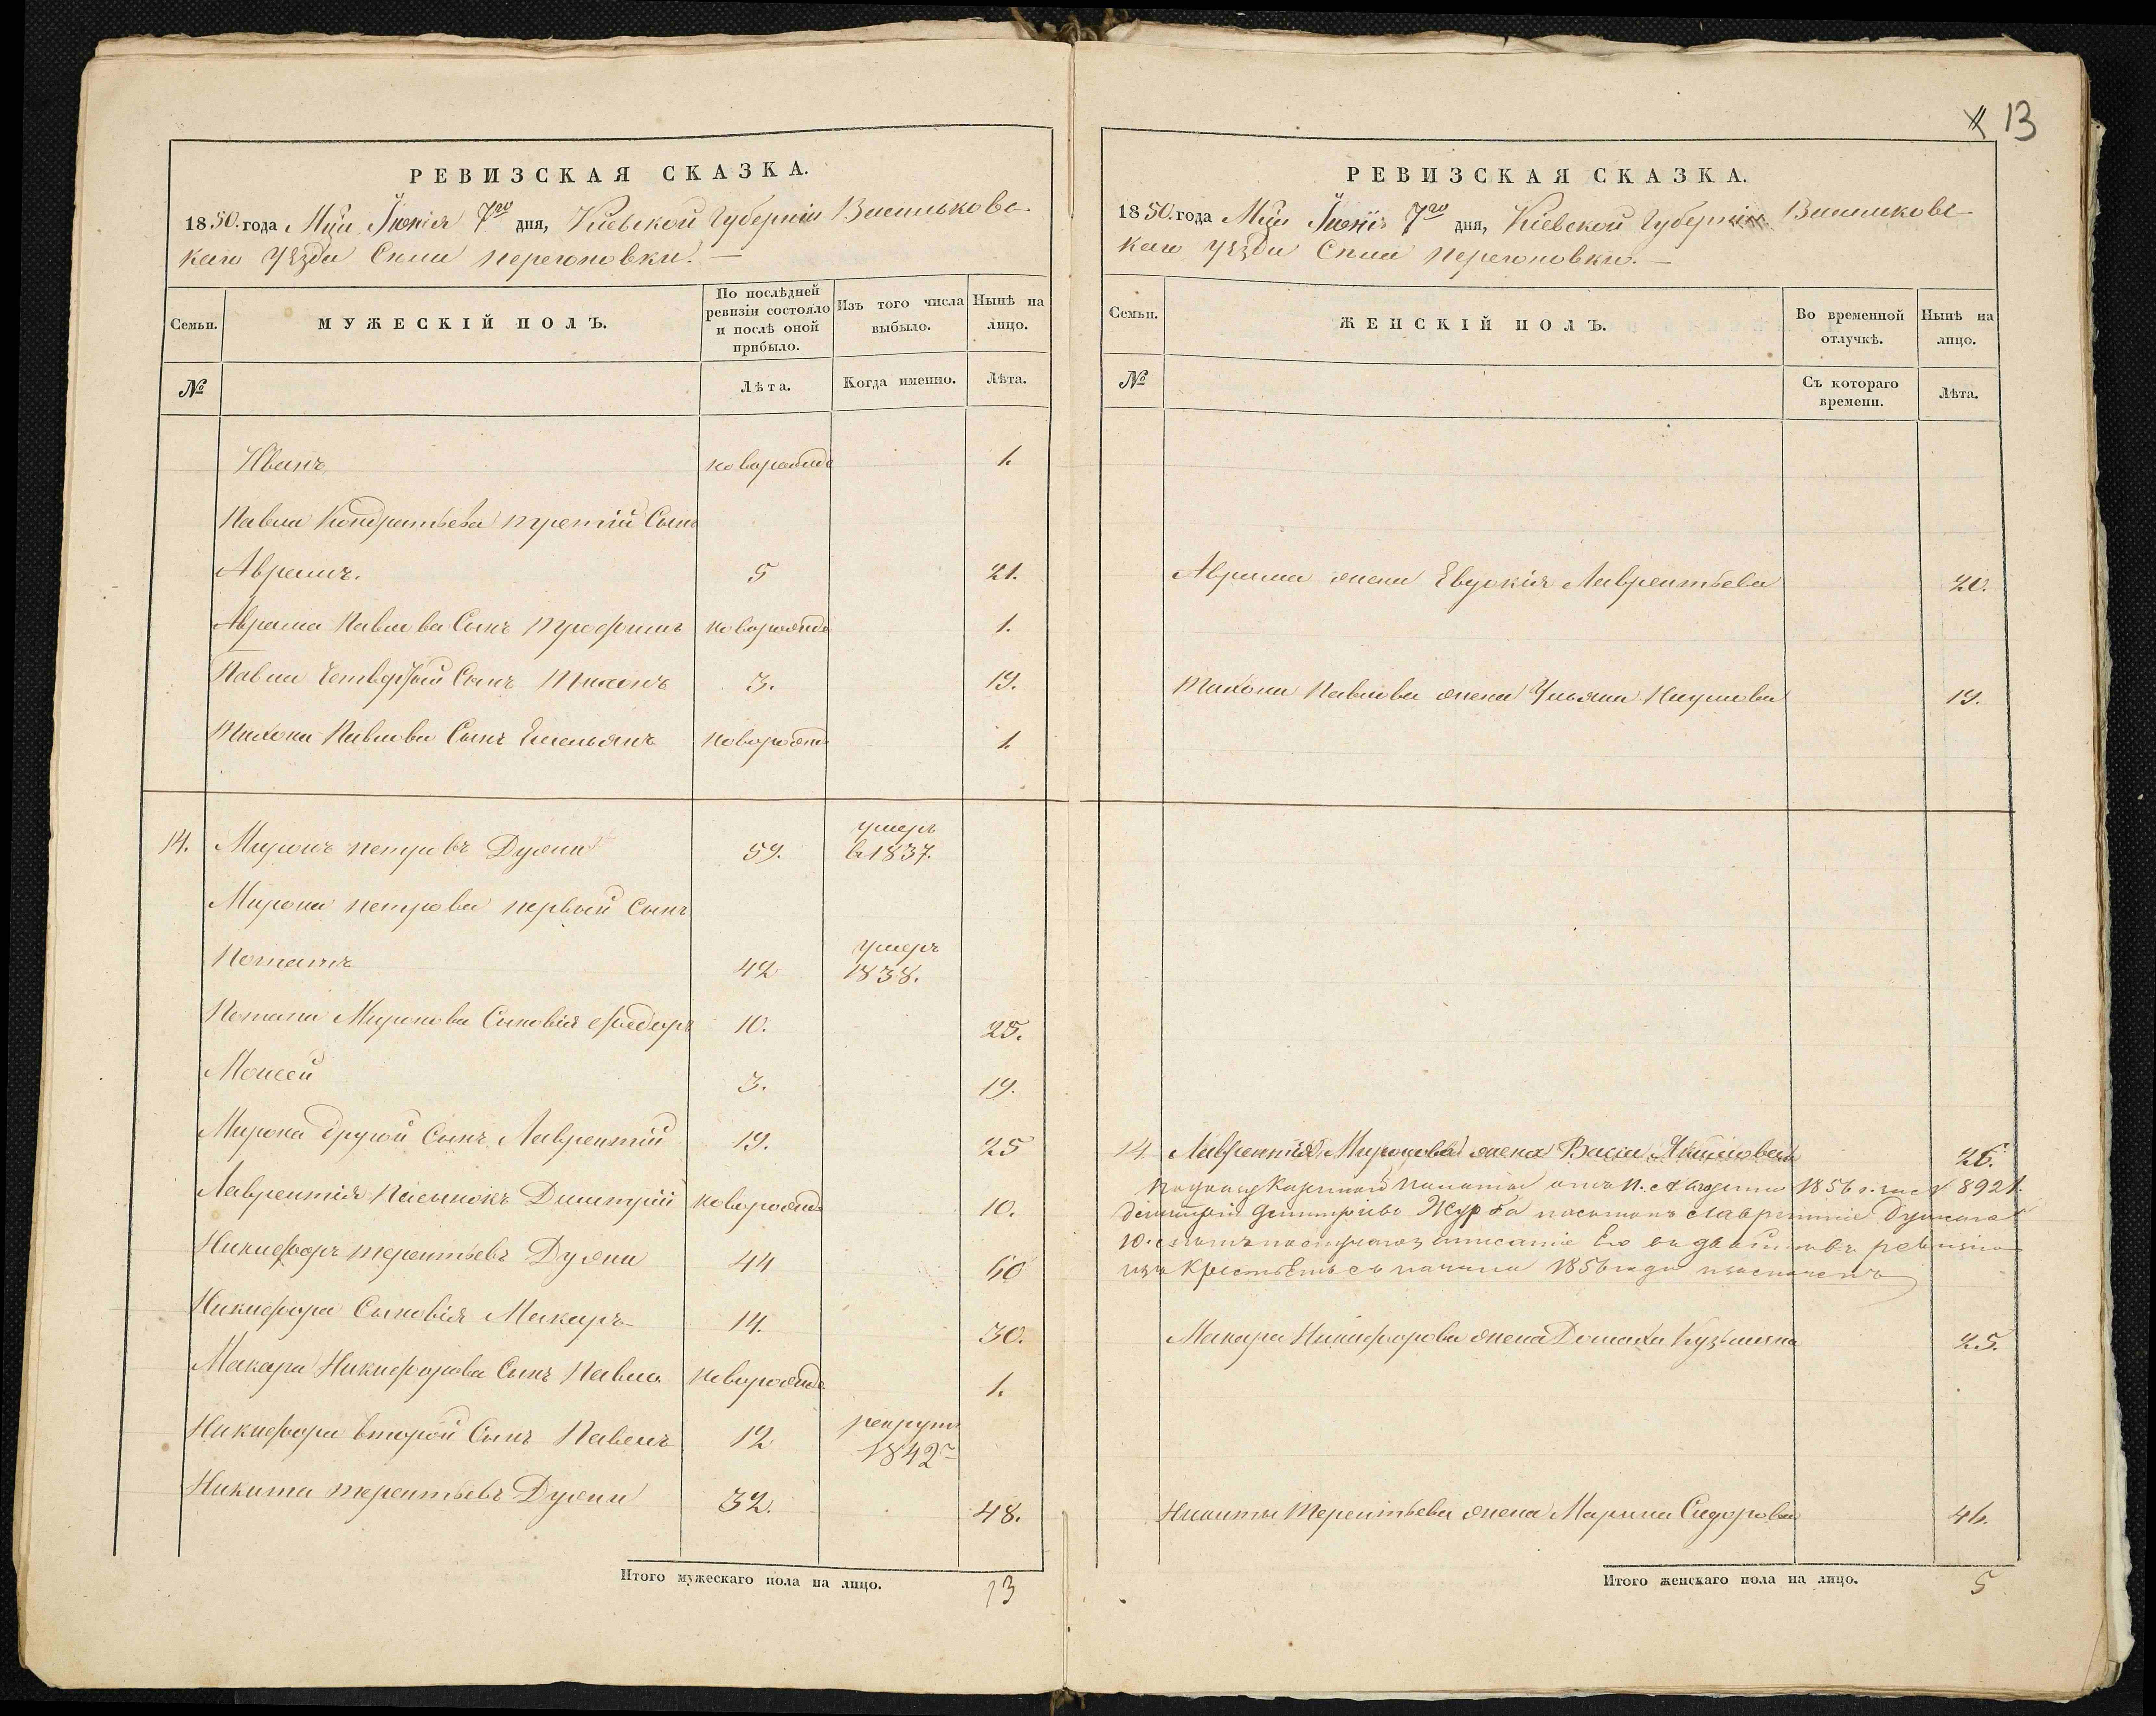 РЕВИЗСКАЯ СКАЗКА.
1850. года М̃ца Іюнія 7го дня, Кіевской Губерніи Васильковс-
каго уѣзда Села Перегоновки. —
Семьи.
МУЖЕСКІЙ ПОЛЪ.
По послѣдней ревизіи состояло и послѣ оной прибыло.
Изъ того числа выбыло.
Нынѣ на лицо.
№
Лѣта.
Когда именно.
Лѣта.
Иванъ новорожд 1.
Павла Кондратьева третій Сынъ
Аврамъ. 5 21.
Аврама Павлова Сынъ Трофимъ новорожд 1.
Павла Четвертый Сынъ Тихонъ 3. 19.
Тихона Павлова Сынъ Емельянъ новорожд 1.
14. Миронъ Петровъ Дужии 59. умеръ в 1837.
Мирона Петрова первый Сынъ
Потапъ 42 умеръ 1838.
Потапа Миронова Сыновія Федоръ 10. 25.
Моисей 3. 19.
Мирона другой Сынъ Лаврентій 19. 25
Лаврентія Пасынокъ Димитрій новорожд 10.
Никифоръ Терентьевъ Дужии 44 60
Никифора Сыновія Макаръ 14. 30.
Макара Никифорова Сынъ Павло новорожд 1.
Никифора второй Сынъ Павелъ 12 рекрут 1842г
Никита Терентьевъ Дужии 32. 48.
Итого мужескаго пола на лицо. 13
13
РЕВИЗСКАЯ СКАЗКА.
1850. года М̃ца Іюнія 7го дня, Кіевской Губерніи Васильковс-
каго уѣзда Села Перегоновки. —
Семьи.
ЖЕНСКІЙ ПОЛЪ.
Во временной отлучкѣ.
Нынѣ на лицо.
№
Съ котораго времени.
Лѣта.
Аврама жена Евдокія Лаврентьева 20.
Тихона Павлова жена Ульяна Наумова 19.
14. Лаврентія Миронова жена Васса Якимова 26.
По указу Казенной Палаты отъ 1856 г. 8921.
Димитрій Дмитріевъ Журба пасынокъ Лаврентія
10.
изъ Крестьянъ съ начала 1856 года
Макара Никифорова жена Домаха Кузьмина 25.
Никиты Терентьева жена Марина Сидорова 46.
Итого женскаго пола на лицо. 5